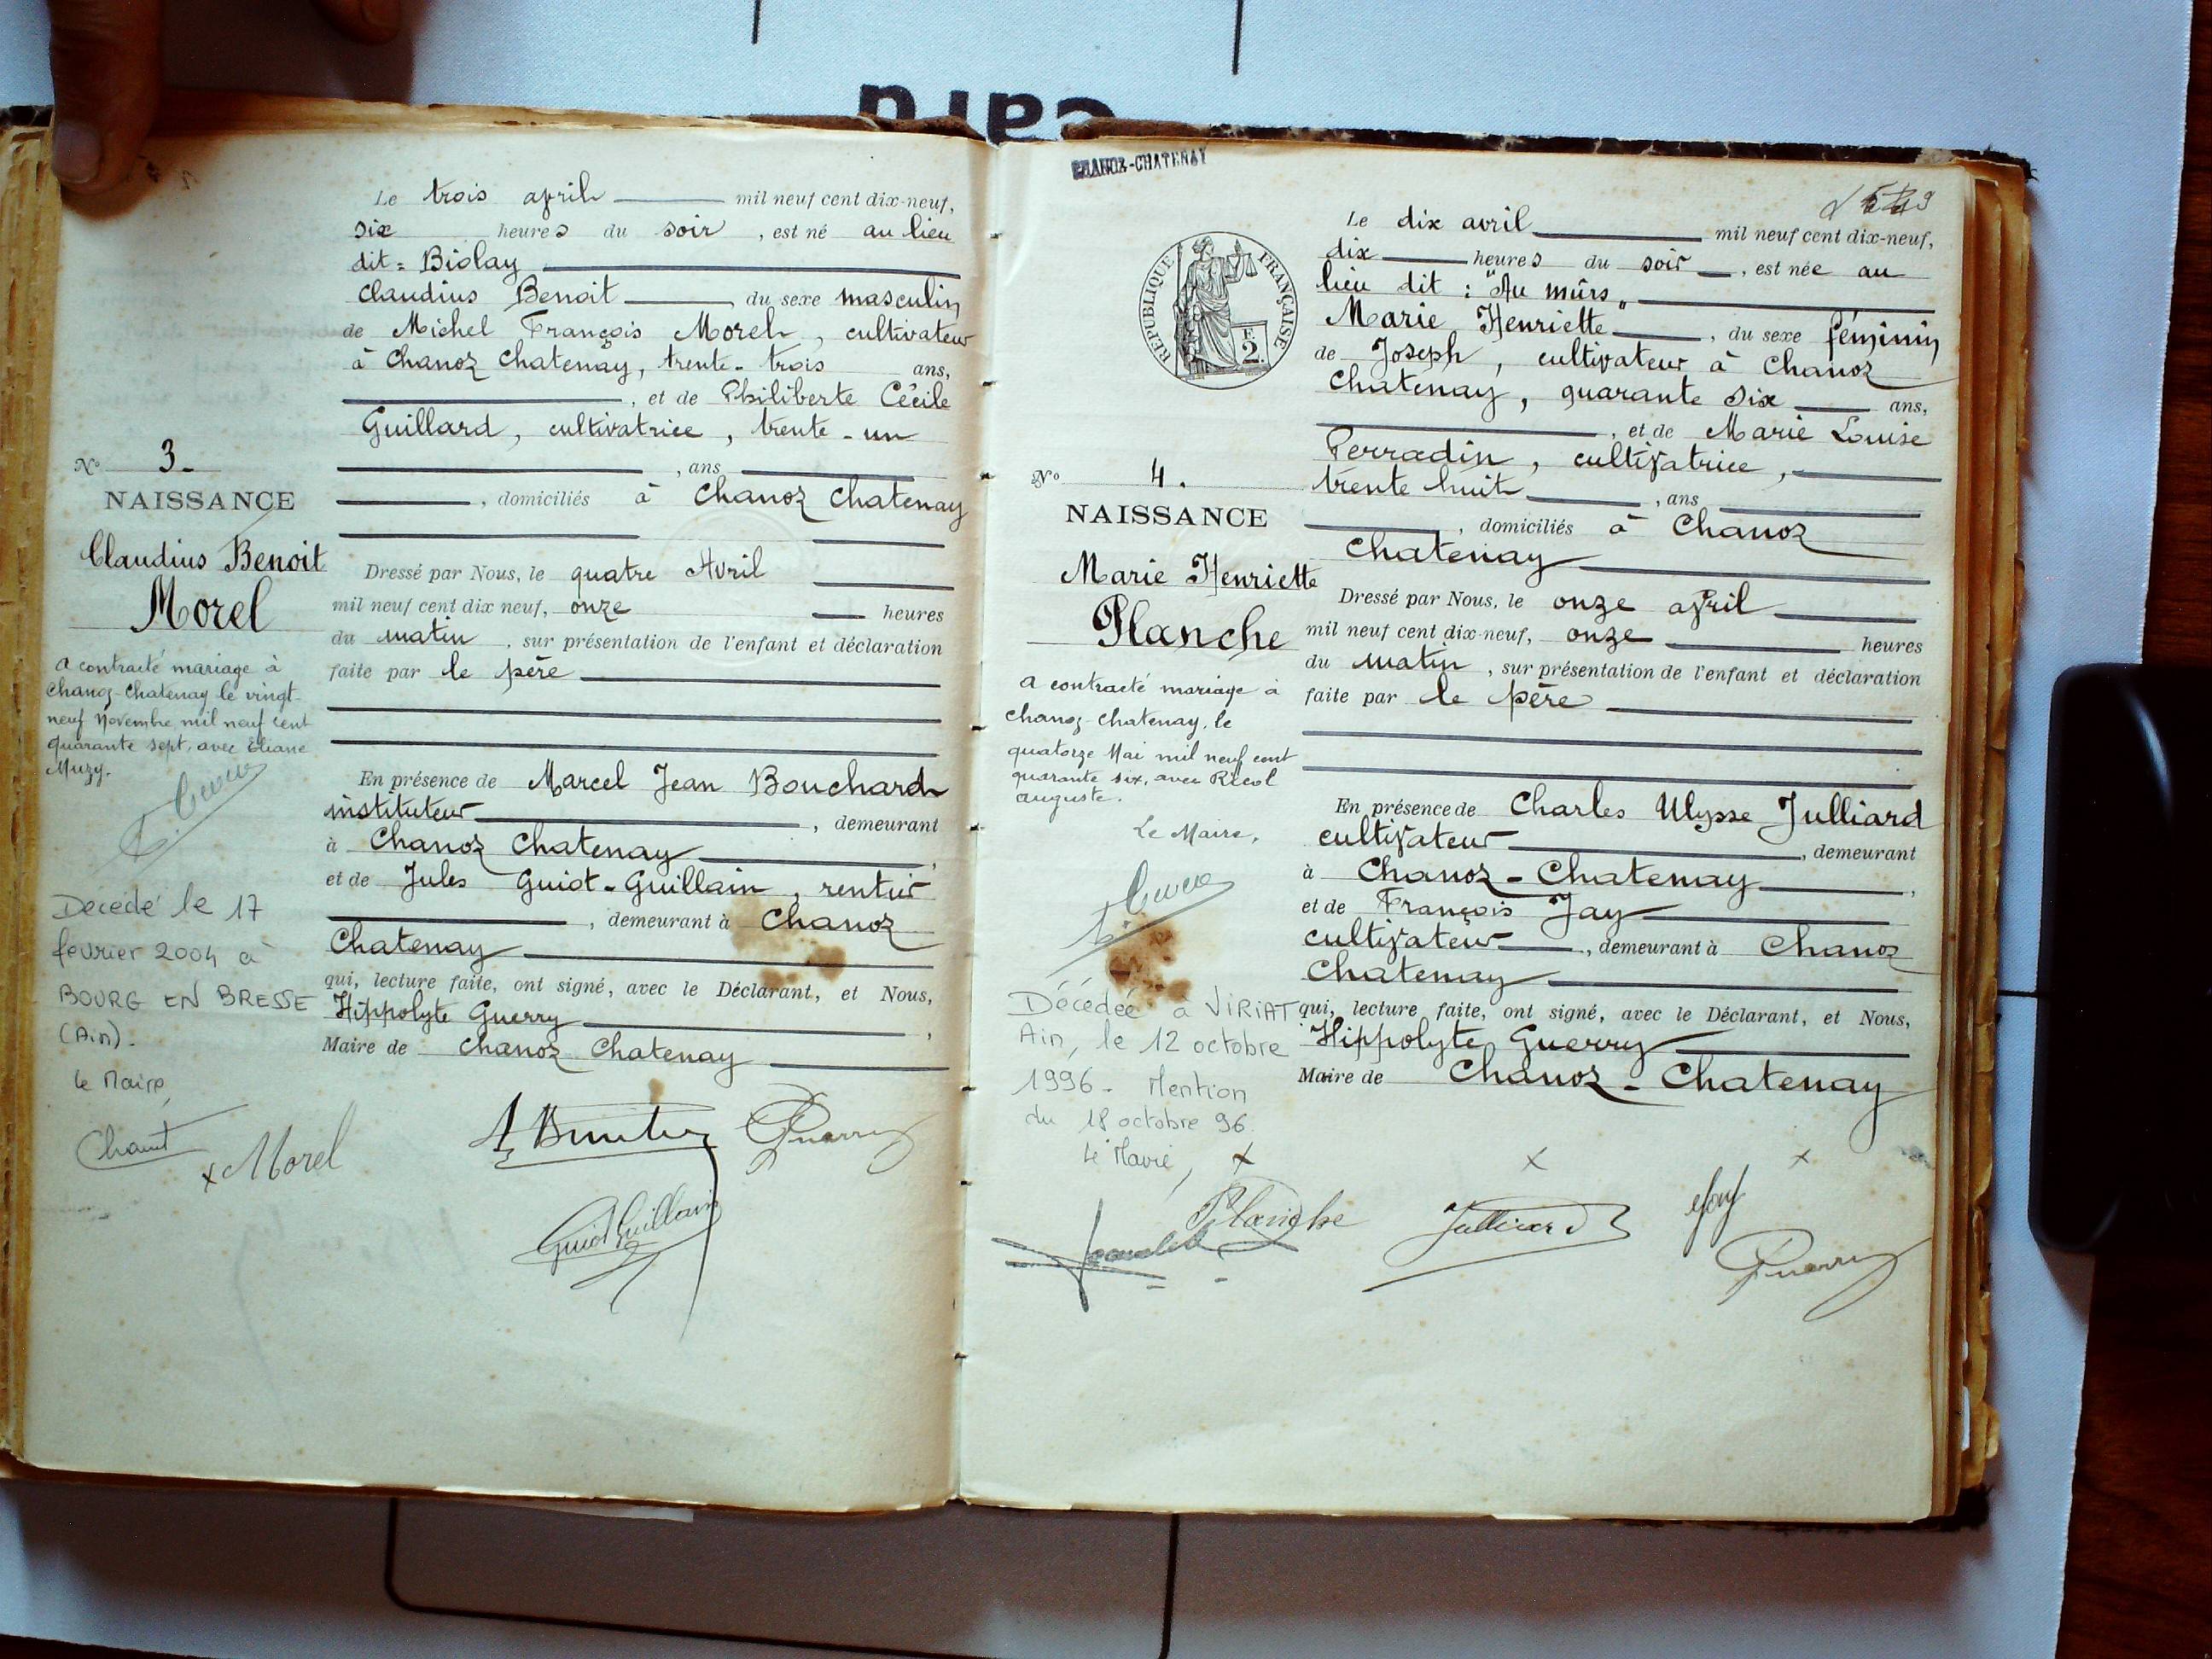 Le trois avril mil neuf cent dix-neuf,
six heures du soir, est né au lieu
dit = Biolay
Claudius Benoit du sexe masculin
de Michel François Morel, cultivateur
à Chanoz Chatenay, trente-trois ans,
, et de Philiberte Cécile
Guillard, cultivatrice, trente-un
, ans
, domiciliés à Chanoz Chatenay
Dressé par Nous, le quatre Avril
mil neuf cent dix neuf, onze heures
du matin, sur présentation de l'enfant et déclaration
faite par le père
En présence de Marcel Jean Bouchard
instituteur, demeurant
à Chanoz Chatenay,
et de Jules Guiot-Guillain, rentier
, demeurant à Chanoz
Chatenay
qui, lecture faite, ont signé, avec le Déclarant, et Nous,
Hippolyte Guerry,
Maire de Chanoz Chatenay
N° 3.
NAISSANCE
Claudius Benoit
Morel
a contracté mariage à
Chanoz-Chatenay le vingt-
neuf Novembre mil neuf cent
quarante sept, avec Eliane
Muzy.
Décédé le 17
février 2004 à
BOURG EN BRESSE
(Ain).
Le Maire,
x Morel
Guerry
Guiot Guillain
CHANOZ-CHATENAY
RÉPUBLIQUE FRANÇAISE
F.
2.
Le dix avril mil neuf cent dix-neuf,
dix heures du soir, est née au
lieu dit : "Au mûrs"
Marie Henriette, du sexe féminin
de Joseph, cultivateur à Chanoz
Chatenay, quarante six ans,
, et de Marie Louise
Perradin, cultivatrice,
trente huit, ans
, domiciliés à Chanoz
Chatenay
Dressé par Nous, le onze avril
mil neuf cent dix-neuf, onze heures
du matin, sur présentation de l'enfant et déclaration
faite par le père
En présence de Charles Ulysse Julliard
cultivateur, demeurant
à Chanoz-Chatenay,
et de François Jay
cultivateur, demeurant à Chanoz
Chatenay
qui, lecture faite, ont signé, avec le Déclarant, et Nous,
Hippolyte Guerry
Maire de Chanoz-Chatenay
N° 4.
NAISSANCE
Marie Henriette
Planche
a contracté mariage à
Chanoz-Chatenay, le
quatorze Mai mil neuf cent
quarante six, avec Récol
auguste.
Le Maire,
Décédée à VIRIAT
Ain, le 12 octobre
1996 - Mention
du 18 octobre 96.
Le Maire,
Planche
Julliard
Jay
Guerry